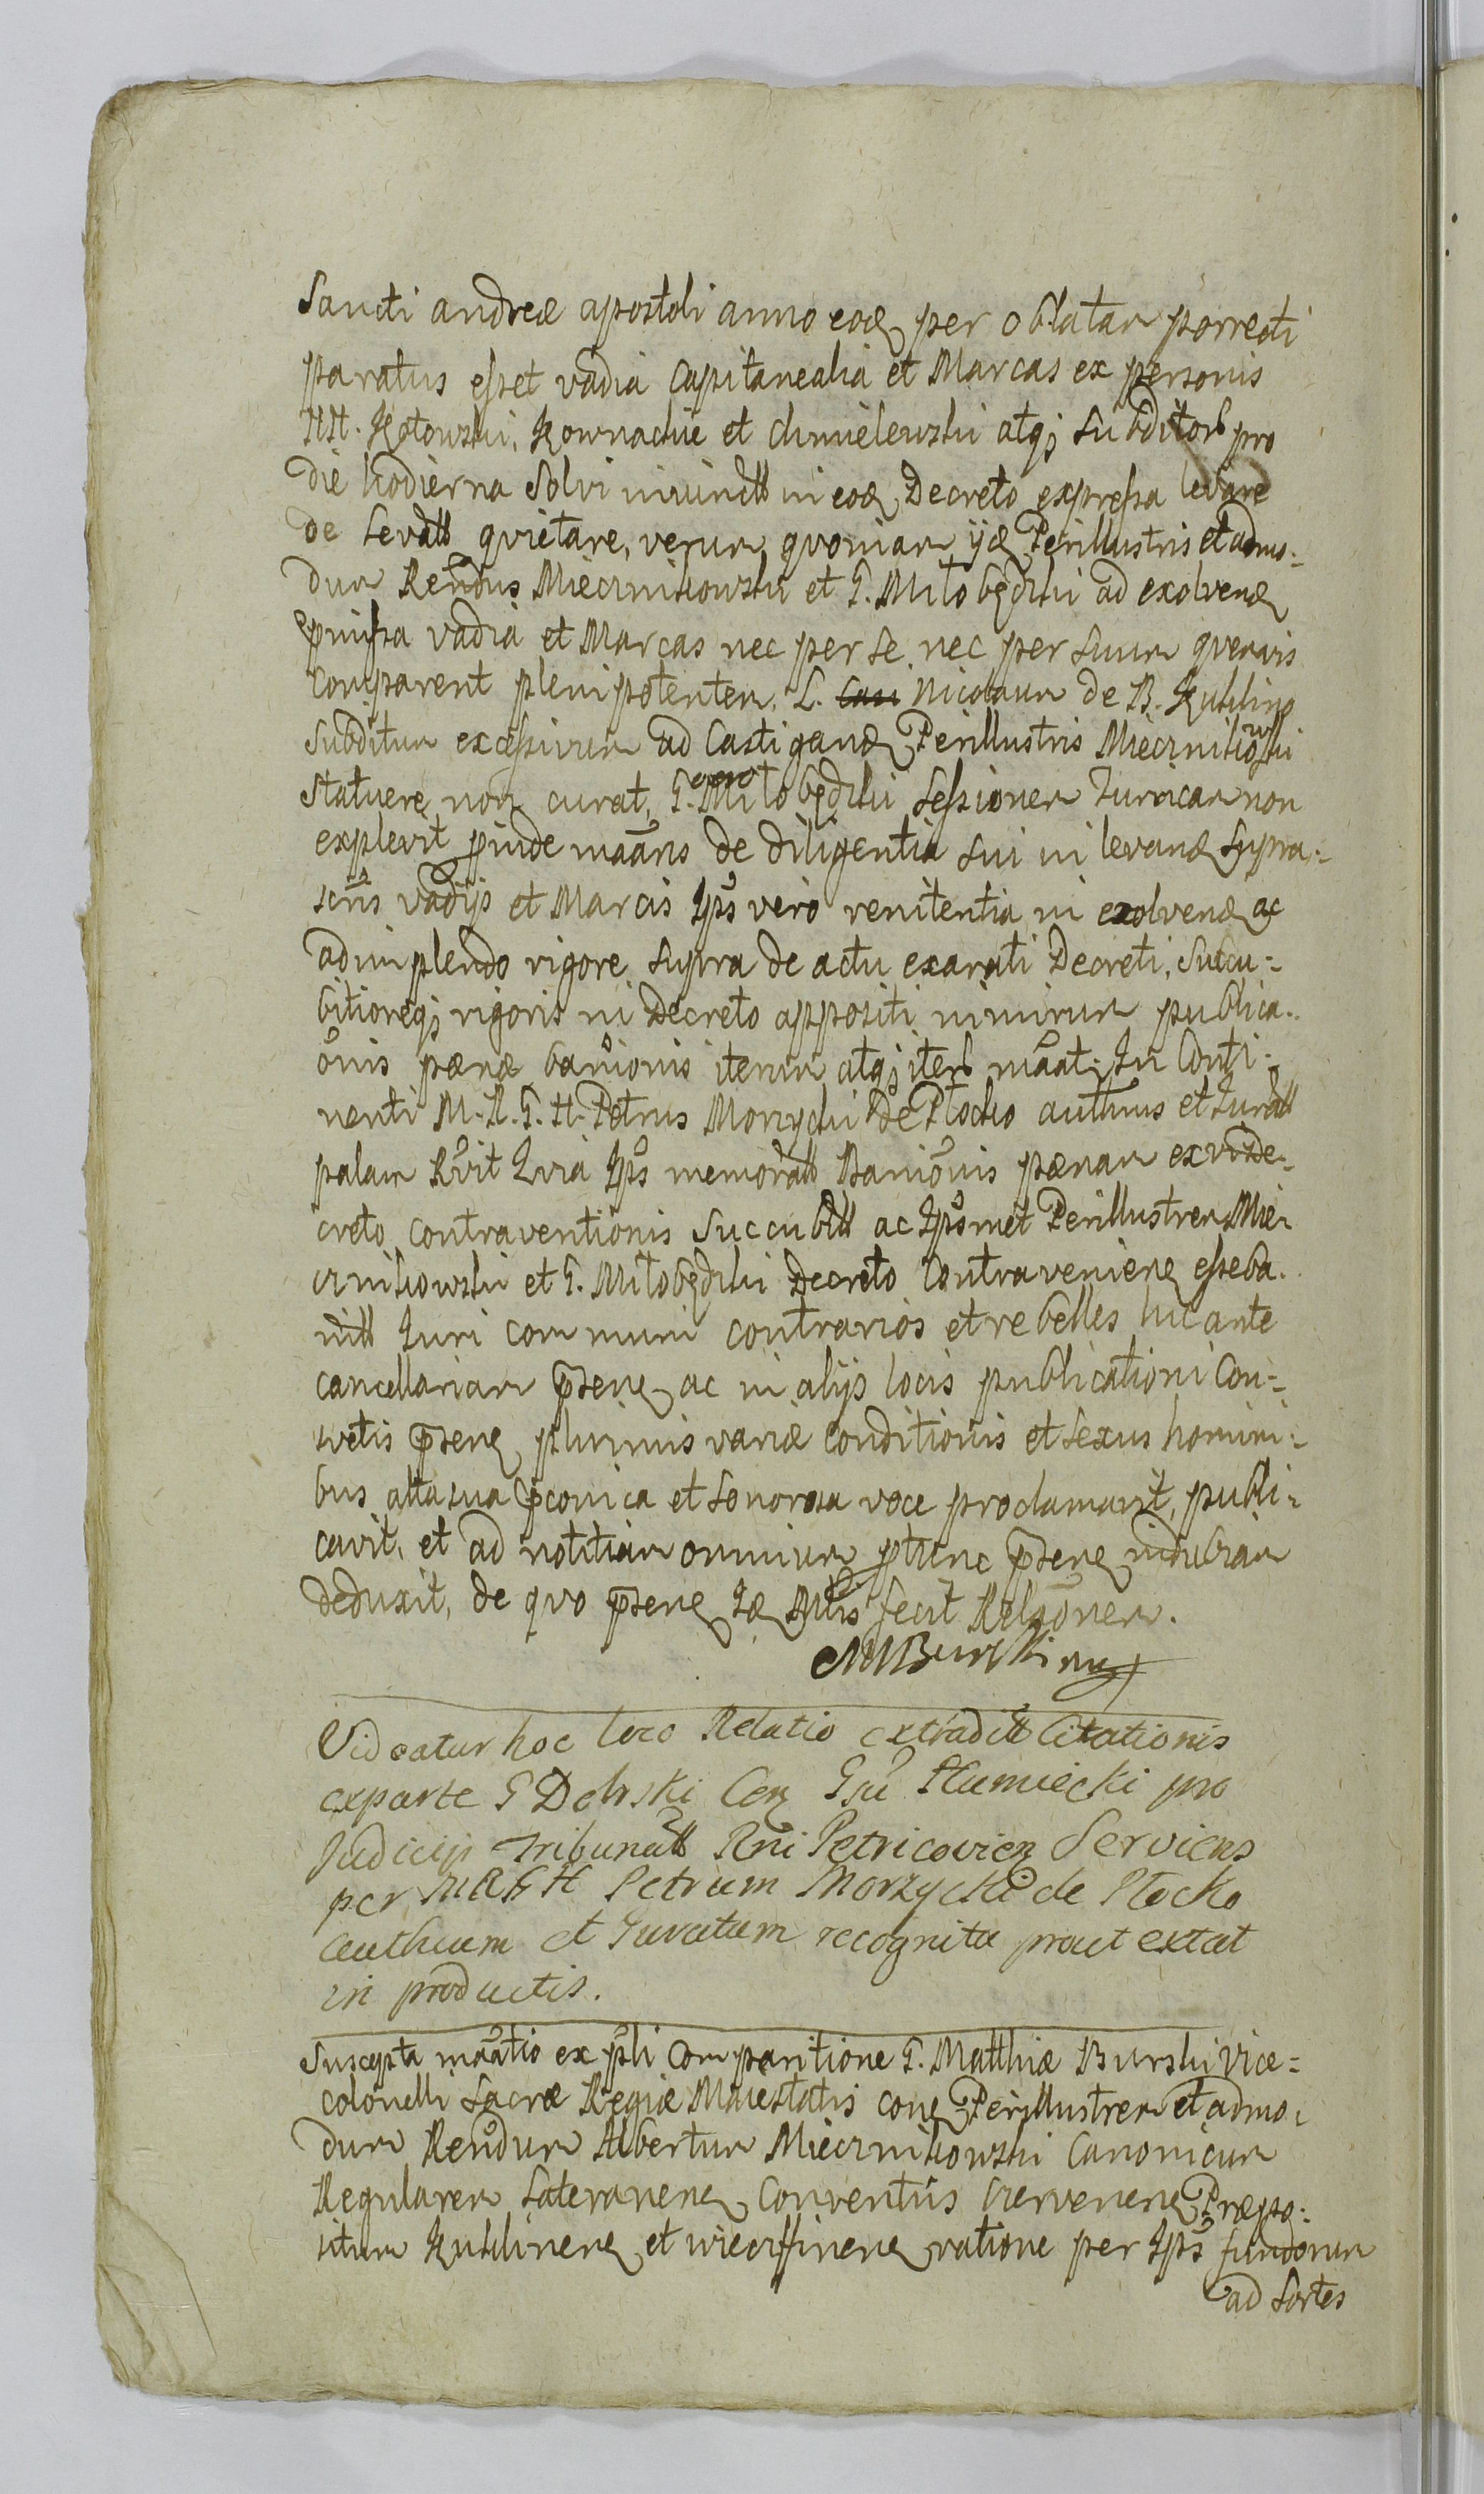 Sancti andreæ apostoli anno eod per oblatam porrecti
paratus esset vadia Capitanealia et Marcas ex personis
HH. Kotowski, Kownackie et chmielewski atq; subditorb pro
die hodierna solvi iniunctt in eod Decreto expressa levare
de levatt quietare, verum quoniam ijd Perillustris et admo-
dum Rendus Miecznikowski et G. Miłobędzki ad exolvend
pmissa vadia et Marcas nec per se nec per suum quemvis
comparent plenipotentem, L. Nicolaum de B. Kuklino
subditum excessivum ad Castigand Perillustris Miecznikowski
statuere non curat, G. vero Miłobędzki sessionem Turricam non
explevit pinde maans de diligentia sui in levand supra-
scris vadijs et Marcis Ips vero renitentia in exolvend ac
adimplendo rigore supra de actu exarati Decreti, succu-
bitioneq; rigoris in Decreto appositi nimirum publica-
onis pænæ banionis iterum atq; iterb maat. In Conti-
nenti M. R. G. H. Petrus Morzycki de Płocko authcus et Juratt
palam Rvit Quia Ips memoratt Banionis pænam ex vi de-
creto contraventionis succubitt ac Ipsmet Perillustrem Mie-
cznikowski et G. Miłobędzki Decreto Contravenien esse ba-
nitt Juri communi contrarios et rebelles hic ante
cancellariam psen ac in alijs locis publicationi Con-
svetis psen plurimis variæ conditionis et sexus homini-
bus alta sua pconica et sonorosa voce proclamavit, publi-
cavit, et ad notitiam omnium ptunc psen indubiam
deduxit, de quo psen Id Mtis fecit Relaonem.
MBurski mp
Videatur hoc loco Relatio extraditt Citationis
exparte G Dębski Con Gsu Słumiecki pro
Judicijs Tribunatt Rni Petricovien Serviens
per MRGH Petrum Morzycki de Płocko
authcum et Juratum recognita prout extat
in productis.
Suscepta maatio ex psli Comparitione G. Matthiæ Burski vice-
colonelli Sacræ Regiæ Maiestatis con Perillustrem et admo-
dum Rendum Albertum Miecznikowski Canonicum
Regularem Lateranen Conventus Czervenen Præpo-
situm Kuklinen et wieczffinen ratione per Ips fundorum
ad Sortes